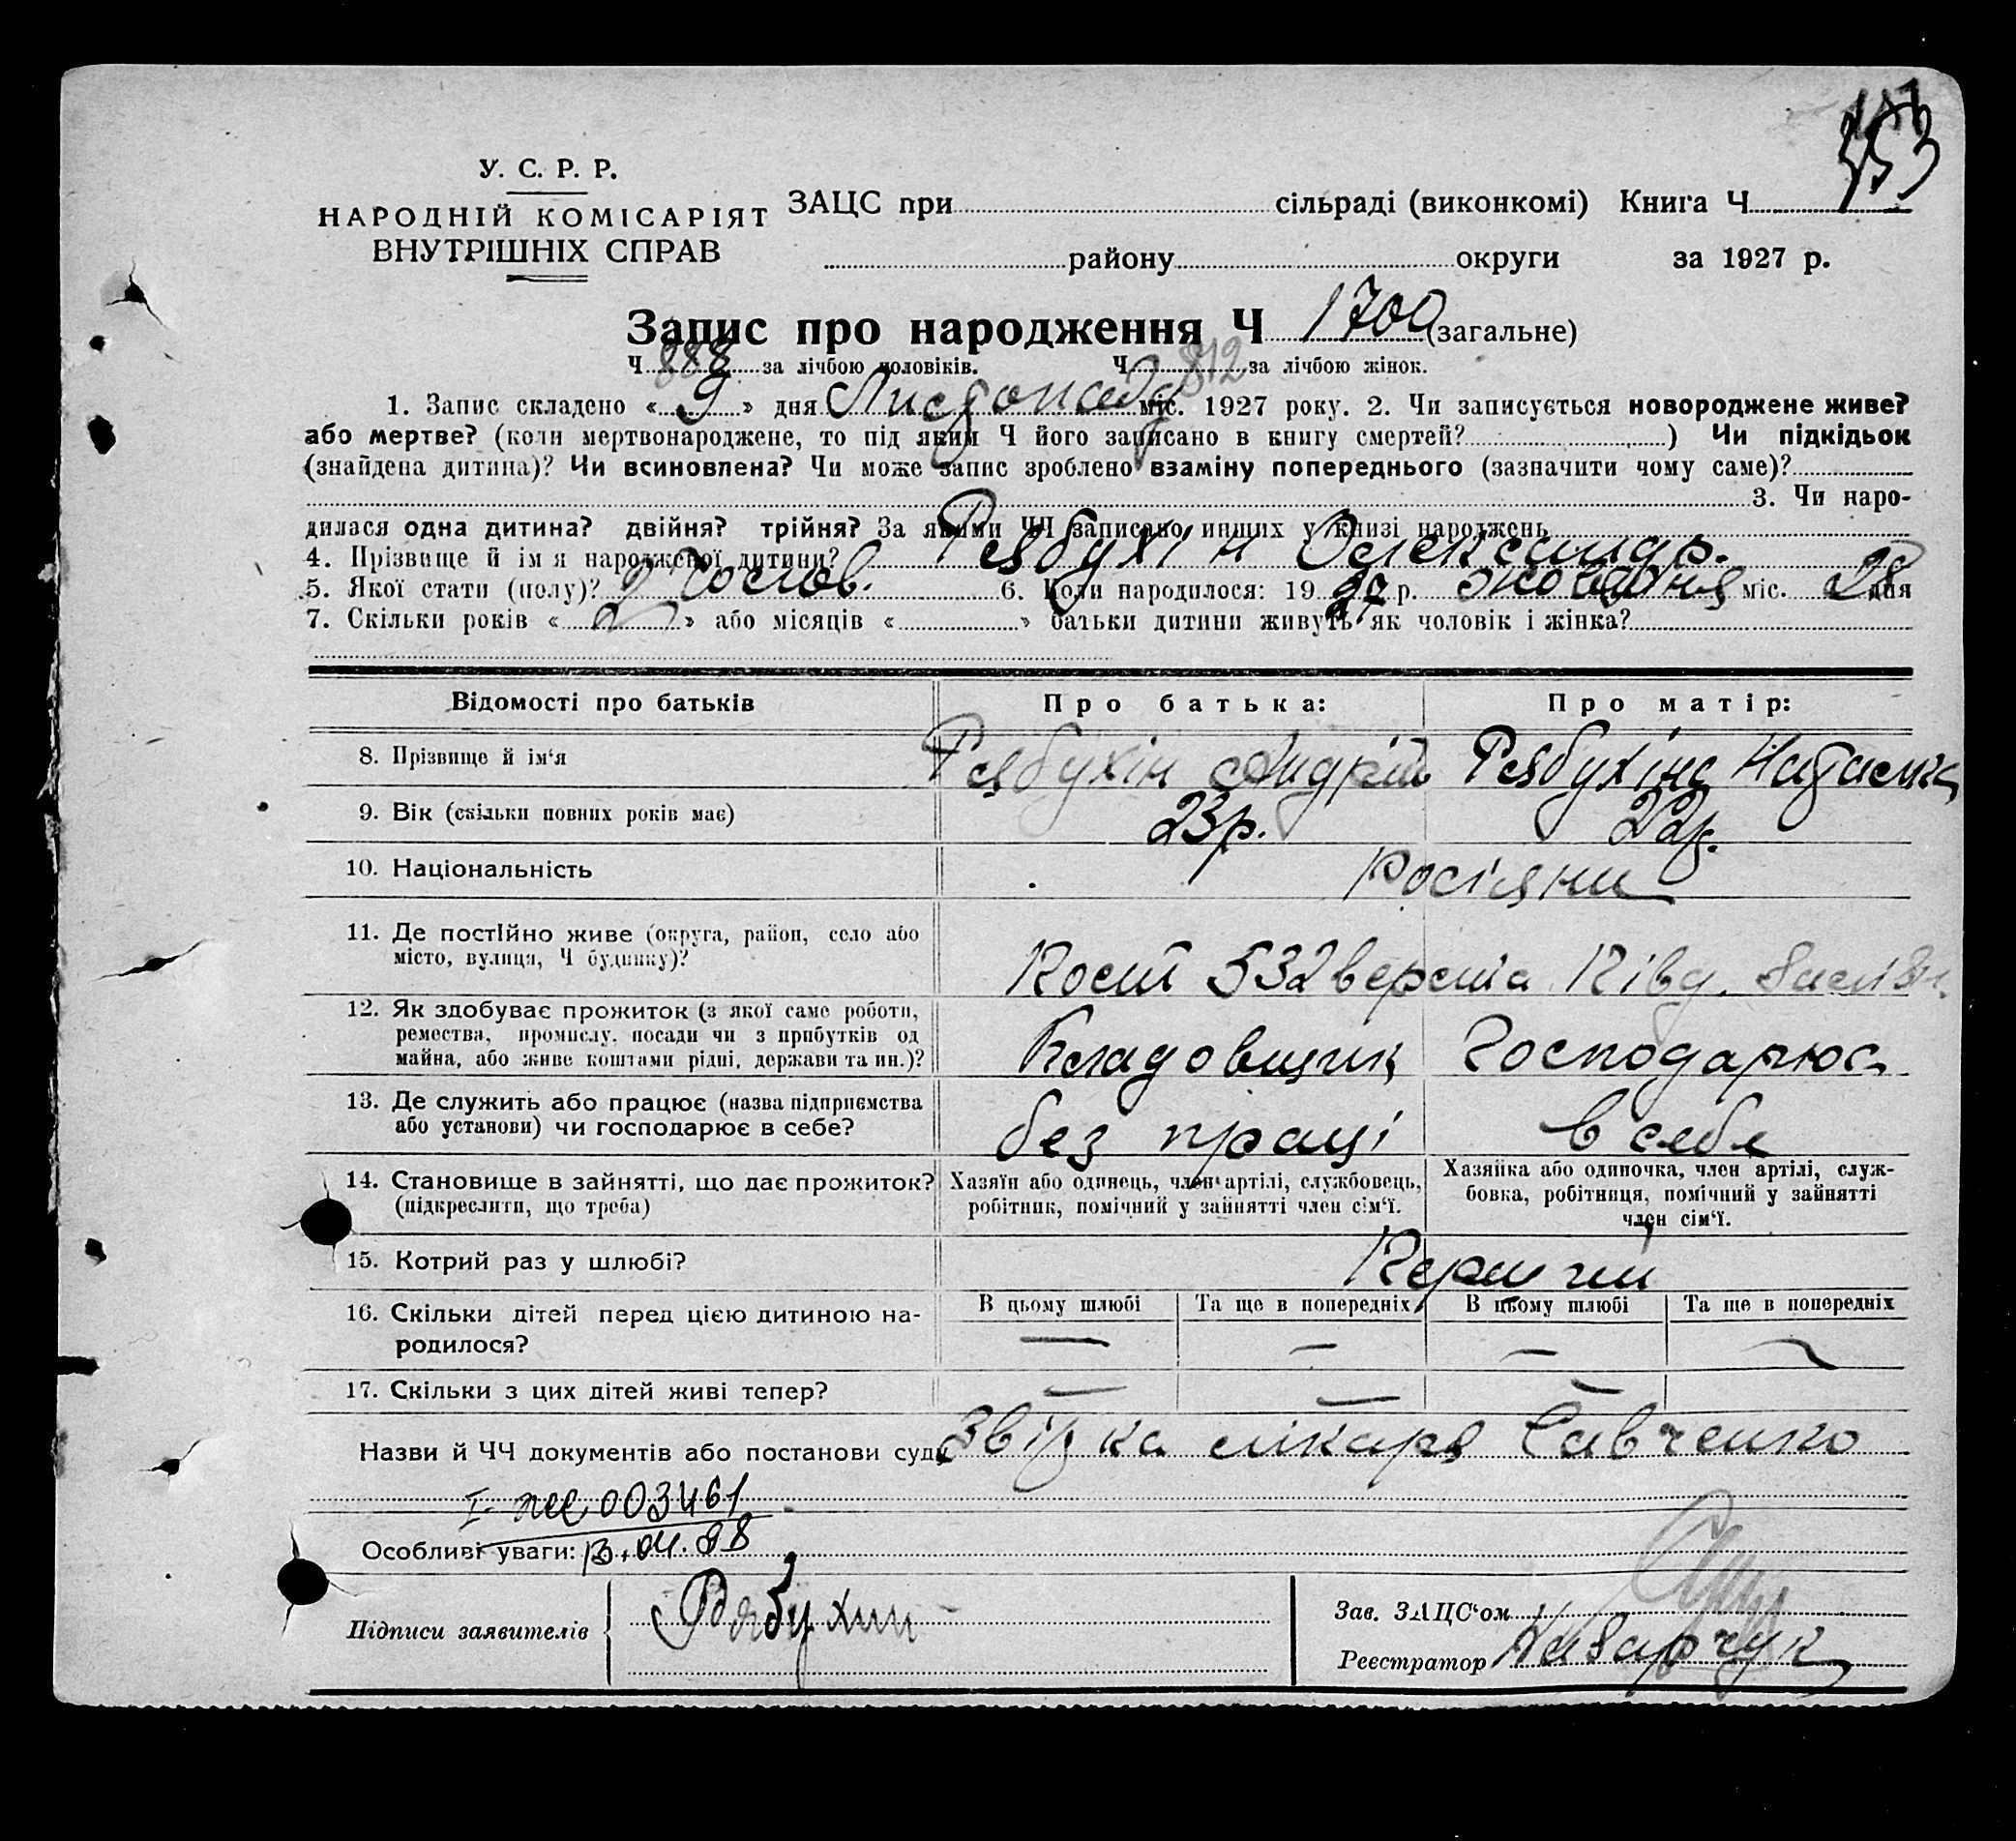 153
У. С. Р. Р.
НАРОДНІЙ КОМІСАРІЯТ
ВНУТРІШНІХ СПРАВ
ЗАЦС при сільраді (виконкомі) Книга Ч
району округи за 1927 р.
Запис про народження Ч 1700 (загальне)
Ч 888 за лічбою чоловіків. Ч 812 за лічбою жінок.
1. Запис складено « 9 » дня Листопада міс. 1927 року. 2. Чи записується новороджене живе?
або мертве? (коли мертвонароджене, то під яким Ч його записано в книгу смертей? ) Чи підкідьок
(знайдена дитина)? Чи всиновлена? Чи може запис зроблено взаміну попереднього (зазначити чому саме)?
3. Чи наро-
дилася одна дитина? двійня? трійня? За якими ЧЧ записано инших у книзі народжень
4. Прізвище й ім я народженої дитини? Рябухін Олександр.
5. Якої стати (полу)? Чолов. 6. Коли народилося: 19 27 р. жовтня міс. 28 дня
7. Скільки років « 2 » або місяців « » батьки дитини живуть як чоловік і жінка?
Відомості про батьків Про батька: Про матір:
8. Прізвище й ім'я Рябухін Андрій Рябухіна Наталка
9. Вік (скільки повних років має) 23р. 22р.
10. Національність Росіяни
11. Де постійно живе (округа, район, село або
місто, вулиця, Ч будинку)? 532 верста Півд.
12. Як здобуває прожиток (з якої саме роботи,
ремества, промислу, посади чи з прибутків од
майна, або живе коштами рідні, держави та ин.)? Кладовщик Господарює
13. Де служить або працює (назва підприємства
або установи) чи господарює в себе? без праці в себе
14. Становище в зайнятті, що дає прожиток?
(підкреслити, що треба)
Хазяїн або одинець, член артілі, службовець,
робітник, помічний у зайнятті член сім'ї.
Хазяйка або одиночка, член артілі, служ-
бовка, робітниця, помічний у зайнятті
член сім'ї.
15. Котрий раз у шлюбі? Перший
16. Скільки дітей перед цією дитиною на-
родилося?
В цьому шлюбі Та ще в попередніх В цьому шлюбі Та ще в попередніх
— — — —
17. Скільки з цих дітей живі тепер? — — —
Назви й ЧЧ документів або постанови суду Звістка лікаря Савченко
003461
Особливі уваги: 13.04.88
Підписи заявителів Рябухин
Зав. ЗАЦС'ом
Реєстратор Назарчук